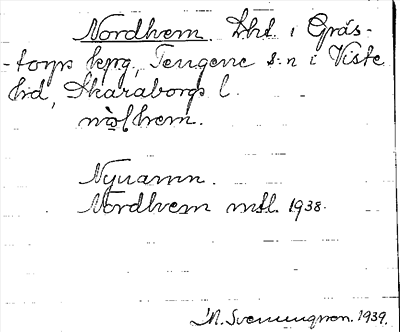 Nordhem. Lht. i Gräs-
-torps kpg, Tengene s:n i Viste
hd, Skaraborgs l.
Nynamn.
Nordhem mtl. 1938.
M. Svenungson. 1939.